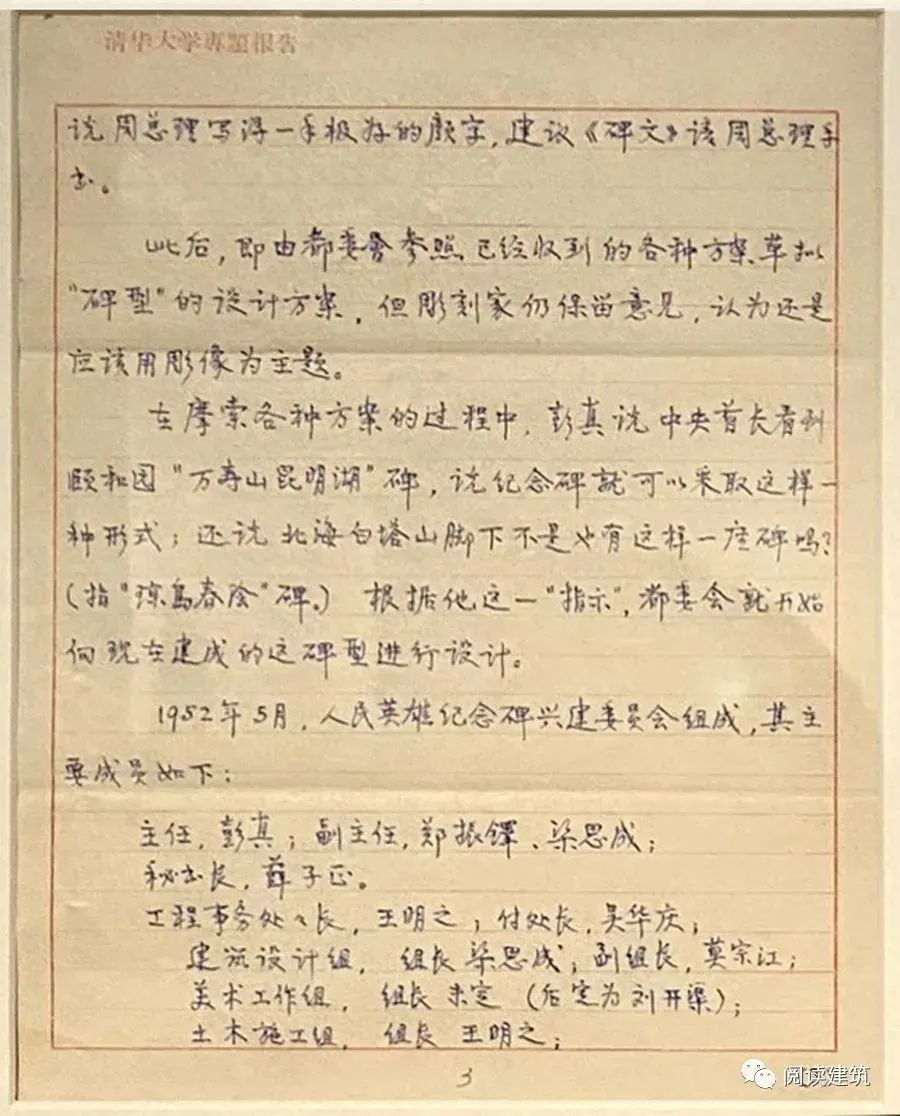 清华大学専題报告
说周总理写得一手极好的颜字，建议《碑文》请周总理手
书。
此后，即由都委會参照已经收到的各种方案草拟
“碑型”的设计方案，但彫刻家仍保留意见，认为还是
应该用彫像为主题。
在摩索各种方案的过程中，彭真说中央首长看到
颐和园“万寿山昆明湖”碑，说纪念碑就可以采取这样一
种形式；还说北海白塔山脚下不是也有这样一座碑吗？
（指“琼岛春阴”碑。）根据他这一“指示”，都委会就开始
向现在建成的这碑型进行设计。
1952年5月，人民英雄纪念碑兴建委员会组成，其主
要成员如下：
主任，彭真；副主任，郑振铎、梁思成；
秘书长，薛子正。
工程事务处々长，王明之；付处长，吴华庆；
建筑设计组，组长 梁思成；副组长，莫宗江；
美术工作组，组长 未定（后定为刘开渠）；
土木施工组，组长 王明之；
3
阅读建筑